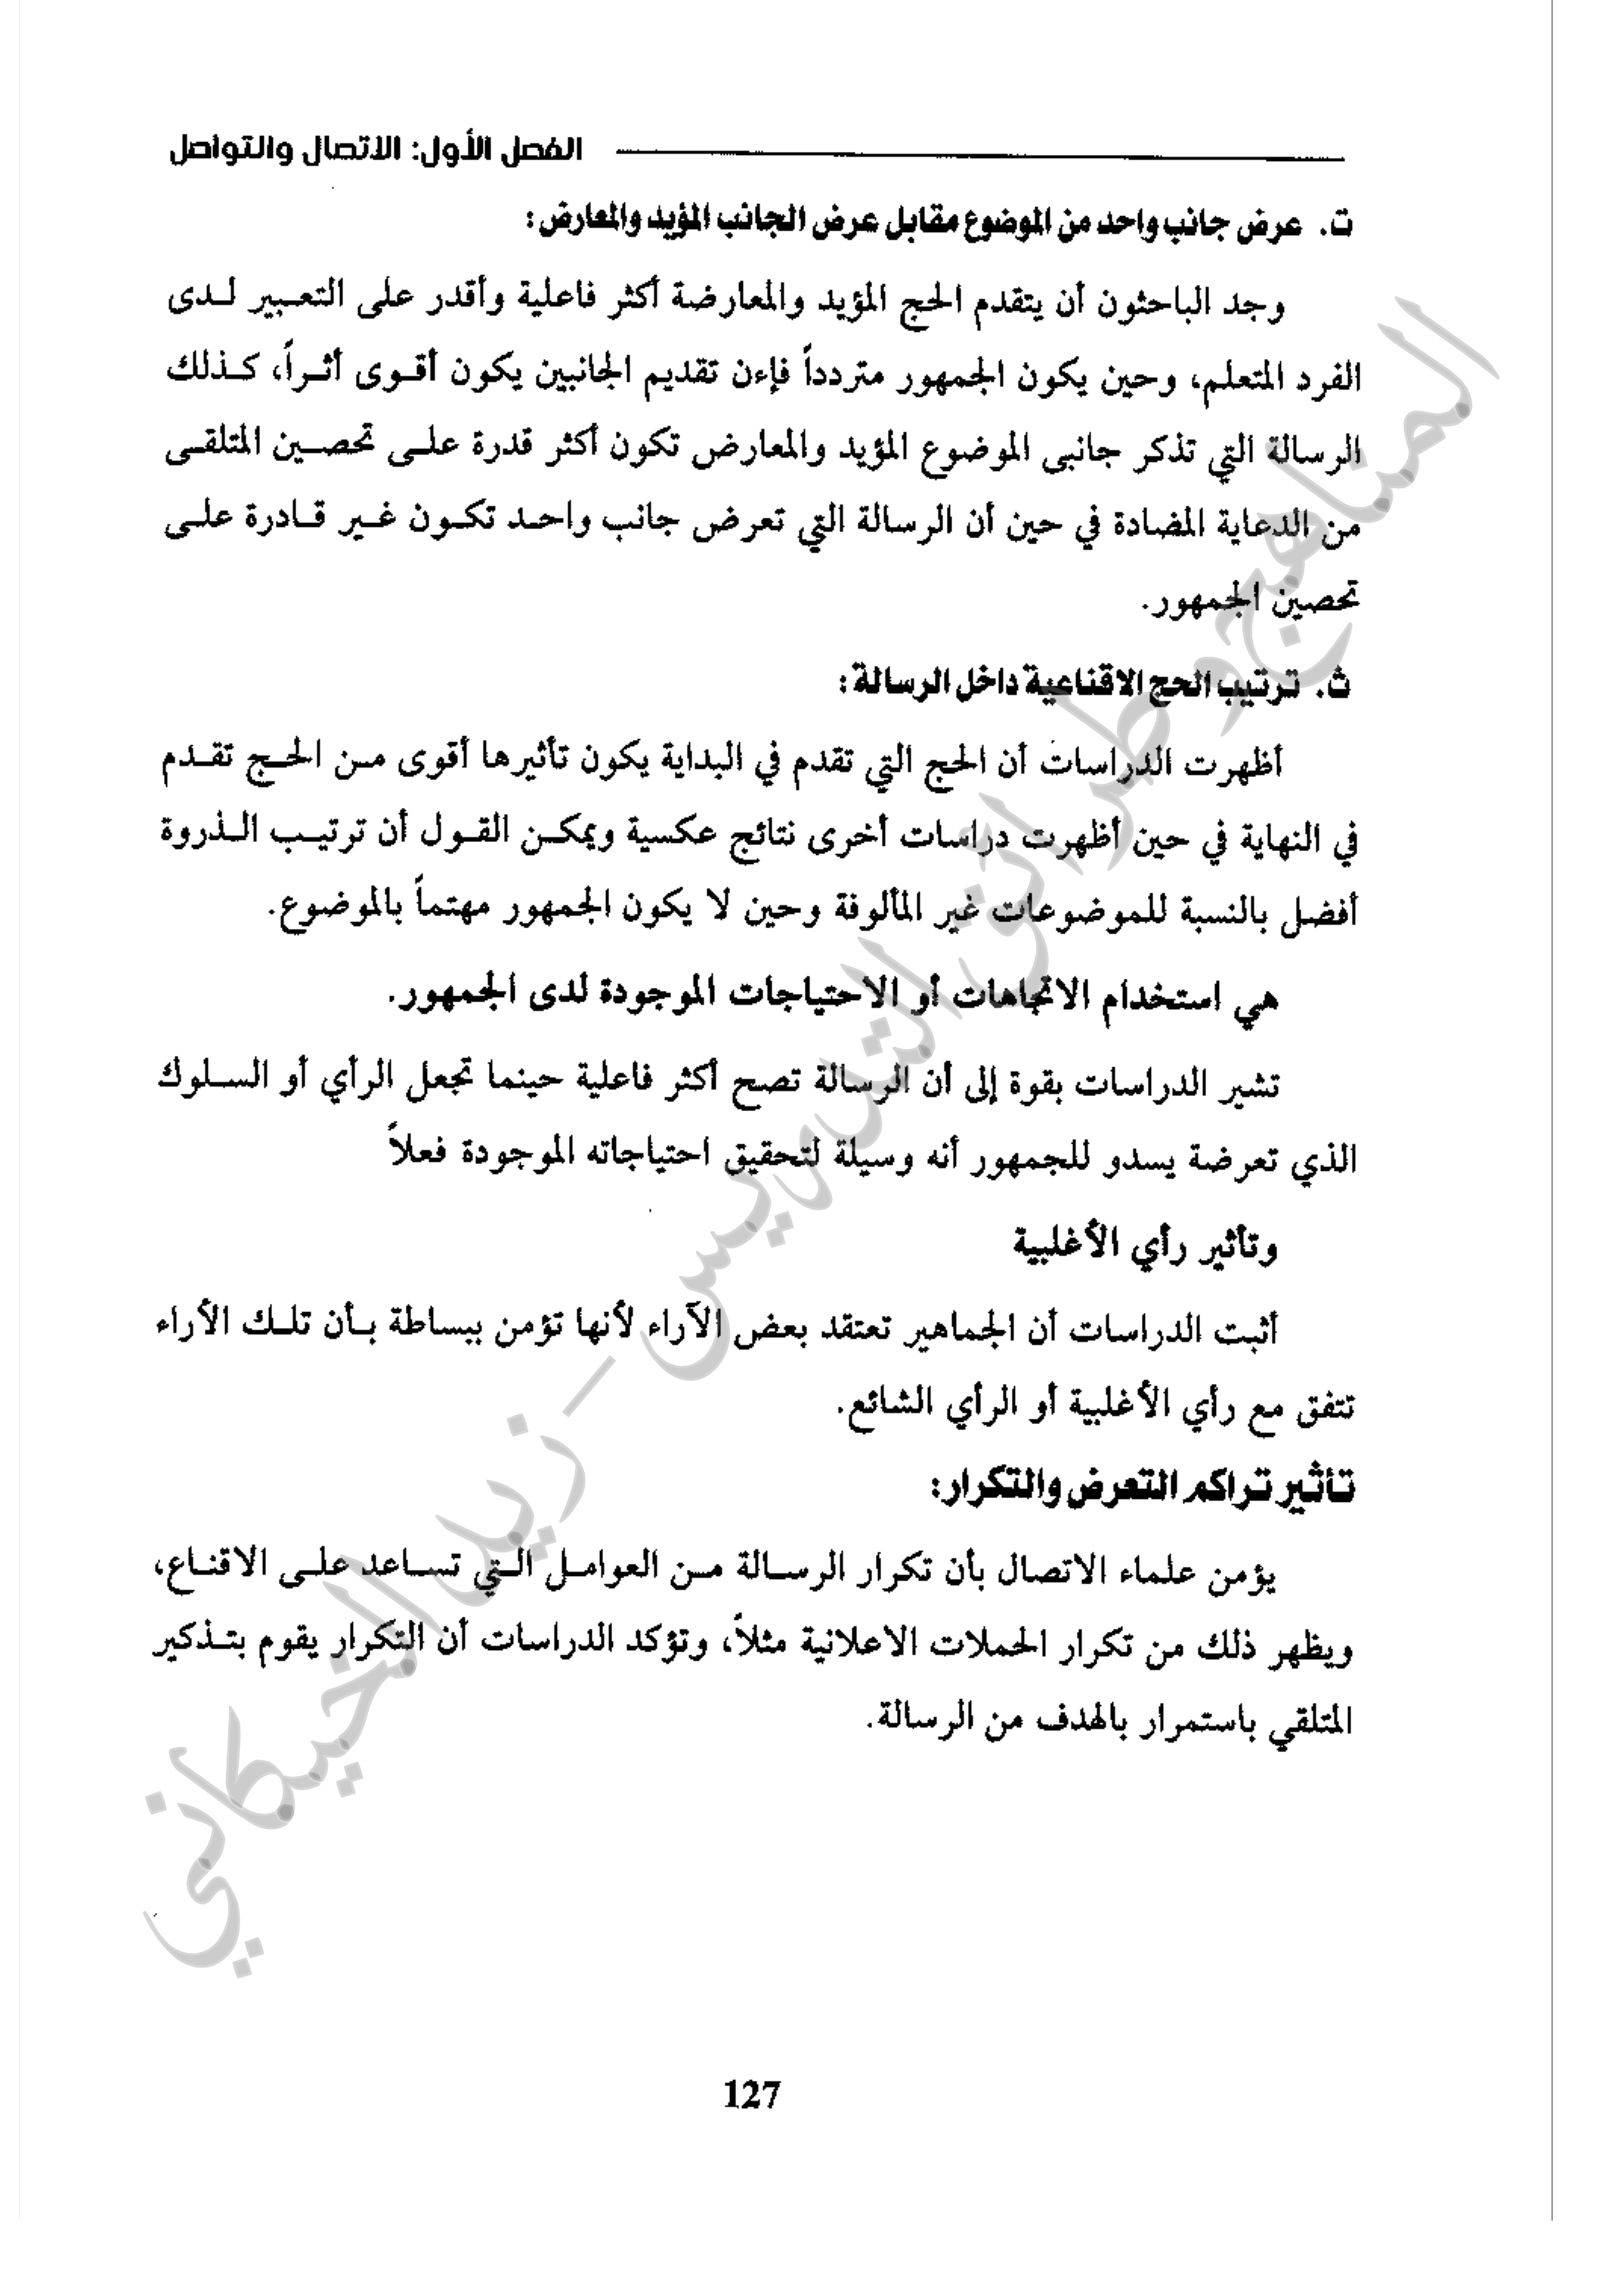 الفصل الأول: الاتصال والتواصل
ت. عرض جانب واحد من الموضوع مقابل عرض الجانب المؤيد والمعارض:
وجد الباحثون أن يتقدم الحج المؤيد والمعارضة أكثر فاعلية وأقدر على التعبير لدى
الفرد المتعلم، وحين يكون الجمهور متردداً فإءن تقديم الجانبين يكون أقوى أثراً، كذلك
الرسالة التي تذكر جانبى الموضوع المؤيد والمعارض تكون أكثر قدرة على تحصين المتلقى
من الدعاية المضادة في حين أن الرسالة التي تعرض جانب واحد تكون غير قادرة على
تحصين الجمهور.
ث. ترتيب الحج الاقناعية داخل الرسالة:
أظهرت الدراسات أن الحج التي تقدم في البداية يكون تأثيرها أقوى من الحج تقدم
في النهاية في حين أظهرت دراسات أخرى نتائج عكسية ويمكن القول أن ترتيب الذروة
أفضل بالنسبة للموضوعات غير المألوفة وحين لا يكون الجمهور مهتماً بالموضوع.
هي استخدام الاتجاهات أو الاحتياجات الموجودة لدى الجمهور.
تشير الدراسات بقوة إلى أن الرسالة تصح أكثر فاعلية حينما تجعل الرأي أو السلوك
الذي تعرضة يسدو للجمهور أنه وسيلة لتحقيق احتياجاته الموجودة فعلاً
وتأثير رأي الأغلبية
أثبت الدراسات أن الجماهير تعتقد بعض الآراء لأنها تؤمن ببساطة بأن تلك الأراء
تتفق مع رأي الأغلبية أو الرأي الشائع.
تأثير تراكم التعرض والتكرار:
يؤمن علماء الاتصال بأن تكرار الرسالة من العوامل التي تساعد على الاقناع،
ويظهر ذلك من تكرار الحملات الاعلانية مثلاً، وتؤكد الدراسات أن التكرار يقوم بتذكير
المتلقي باستمرار بالهدف من الرسالة.
المناهج وطرائق التدريس – زيد الخيكاني
127